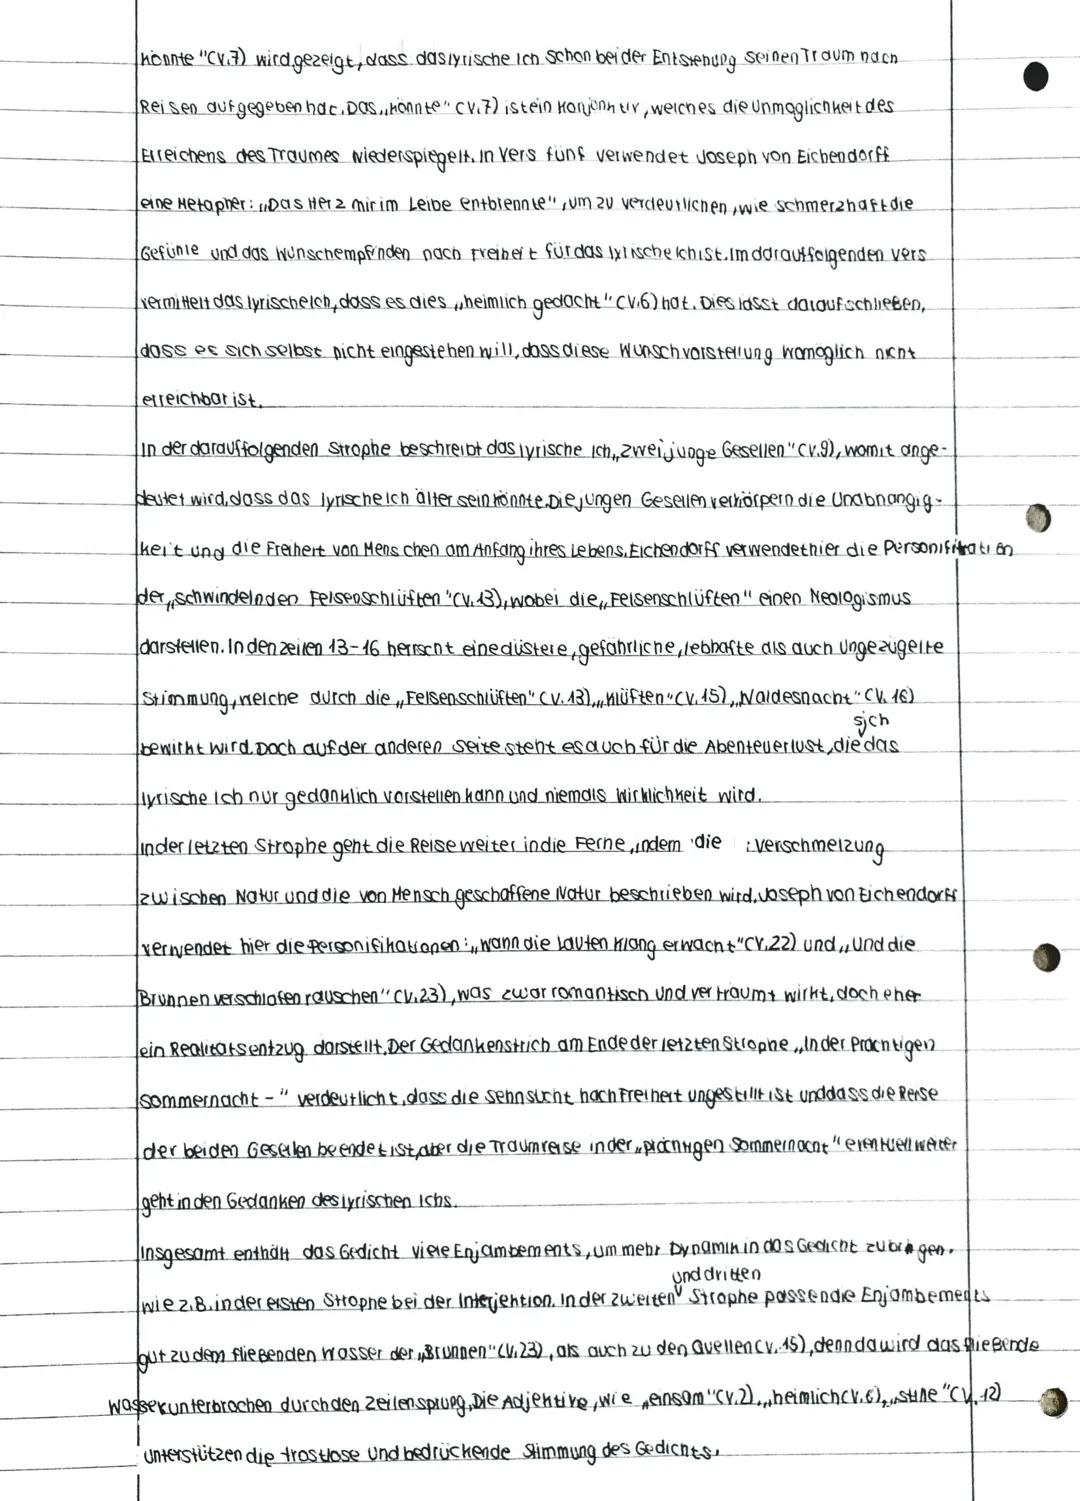 könnte "(V.7) wird gezeigt, dass das lyrische Ich schon bei der Entstehung seinen Traum nach
Reisen aufgegeben hat. Das „könnte" (V.7) ist ein Konjunktiv, welches die Unmöglichkeit des
Erreichens des Traumes wiederspiegelt. In Vers fünf verwendet Joseph von Eichendorff
eine Metapher: „Das Herz mir im Leibe entbrennte", um zu verdeutlichen, wie schmerzhaft die
Gefühle und das Wunschempfinden nach Freiheit für das lyrische Ich ist. Im darauffolgenden Vers
vermittelt das lyrische Ich, dass es dies „heimlich gedacht" (V.6) hat. Dies lässt darauf schließen,
dass es sich selbst nicht eingestehen will, dass diese Wunschvorstellung womöglich nicht
erreichbar ist.
In der darauffolgenden Strophe beschreibt das lyrische Ich „zwei junge Gesellen" (V.9), womit ange-
deutet wird, dass das lyrische Ich älter sein könnte. Die jungen Gesellen verkörpern die Unabhängig-
keit und die Freiheit von Menschen am Anfang ihres Lebens. Eichendorff verwendet hier die Personifikation
der „schwindelnden Felsenschlüften "(V. 13), wobei die „Felsenschlüften" einen Neologismus
darstellen. In den Zeilen 13-16 herrscht eine düstere, gefährliche, lebhafte als auch ungezügelte
Stimmung, welche durch die „Felsenschlüften" (V. 13), „Klüften" (V. 15), „Waldesnacht" (V. 16)
sich
bewirkt wird. Doch auf der anderen Seite steht es auch für die Abenteuerlust, die das
lyrische Ich nur gedanklich vorstellen kann und niemals Wirklichkeit wird.
In der letzten Strophe geht die Reise weiter in die Ferne, indem die : Verschmelzung
zwischen Natur und die von Mensch geschaffene Natur beschrieben wird. Joseph von Eichendorff
verwendet hier die Personifikationen: „wann die Lauten Klang erwacht" (V.22) und „Und die
Brunnen verschlafen rauschen" (V.23), was zwar romantisch und verträumt wirkt, doch eher
ein Realitätsentzug darstellt. Der Gedankenstrich am Ende der letzten Strophe „In der prächtigen
Sommernacht - " verdeutlicht, dass die Sehnsucht nach Freiheit ungestillt ist und dass die Reise
der beiden Gesellen beendet ist, aber die Traumreise in der „prächtigen Sommernacht" eventuell weiter
geht in den Gedanken des lyrischen Ichs.
Insgesamt enthält das Gedicht viele Enjambements, um mehr Dynamik in das Gedicht zu bringen.
und dritten
wie z.B. in der ersten Strophe bei der Interjektion. In der zweiten Strophe passen die Enjambements
gut zu dem fließenden Wasser der „Brunnen" (V.23), als auch zu den Quellen (V. 15), denn da wird das fließende
Wasser unterbrochen durch den Zeilensprung. Die Adjektive, wie „einsam" (V.2), „heimlich (V.6), „stille" (V. 12)
unterstützen die trostlose und bedrückende Stimmung des Gedichts.